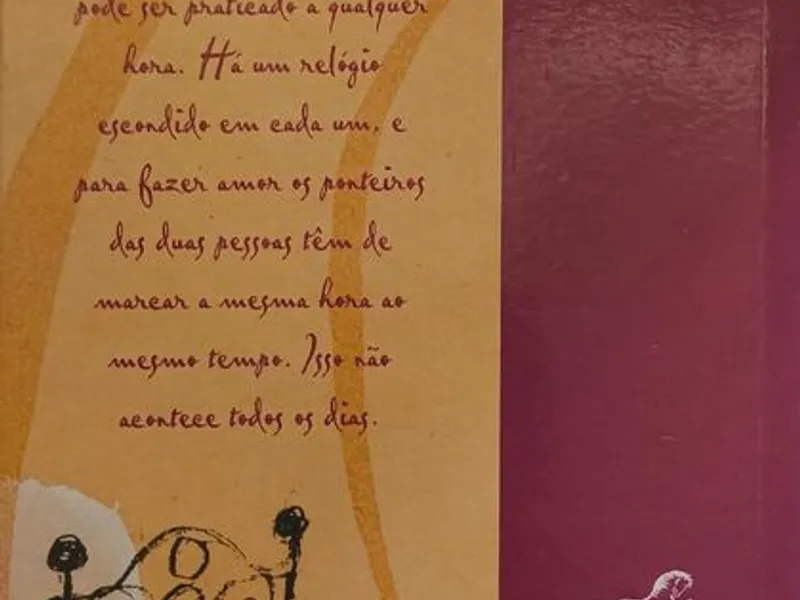 pode ser praticado a qualquer
hora. Há um relógio
escondido em cada um, e
para fazer amor os ponteiros
das duas pessoas têm de
marcar a mesma hora ao
mesmo tempo. Isso não
acontece todos os dias.